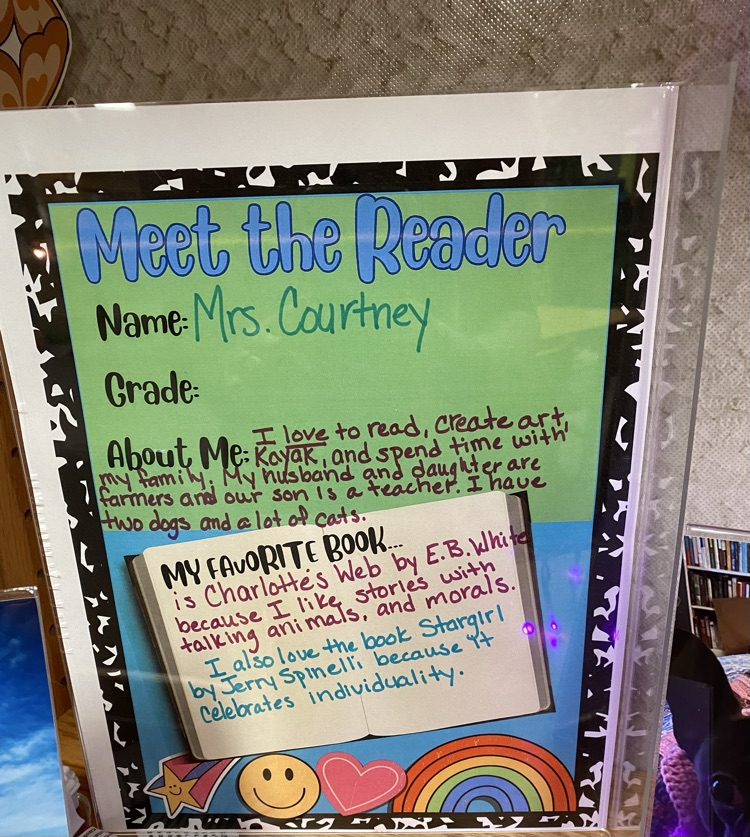 Meet the Reader
Name: Mrs. Courtney
Grade:
About Me: I love to read, create art,
Kayak, and spend time with
my family. My husband and daughter are
farmers and our son is a teacher. I have
two dogs and a lot of cats.
MY FAVORITE BOOK...
is Charlottes Web by E.B. White
because I like stories with
talking animals, and morals.
I also love the book Stargirl
by Jerry Spinelli, because it
celebrates individuality.